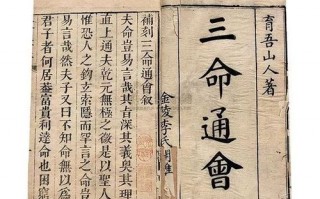 育吾山人著
三命通會
金陵李氏
補刻三命通會敘
夫命豈易言哉其旨深其義奧其
直上通夫乾元無極之微是以聖人
惟恐人之鉤玄索隱而罕言之命豈
易言哉然夫子又曰不知命無以爲
君子者何居蓋富貴利達命也因窮